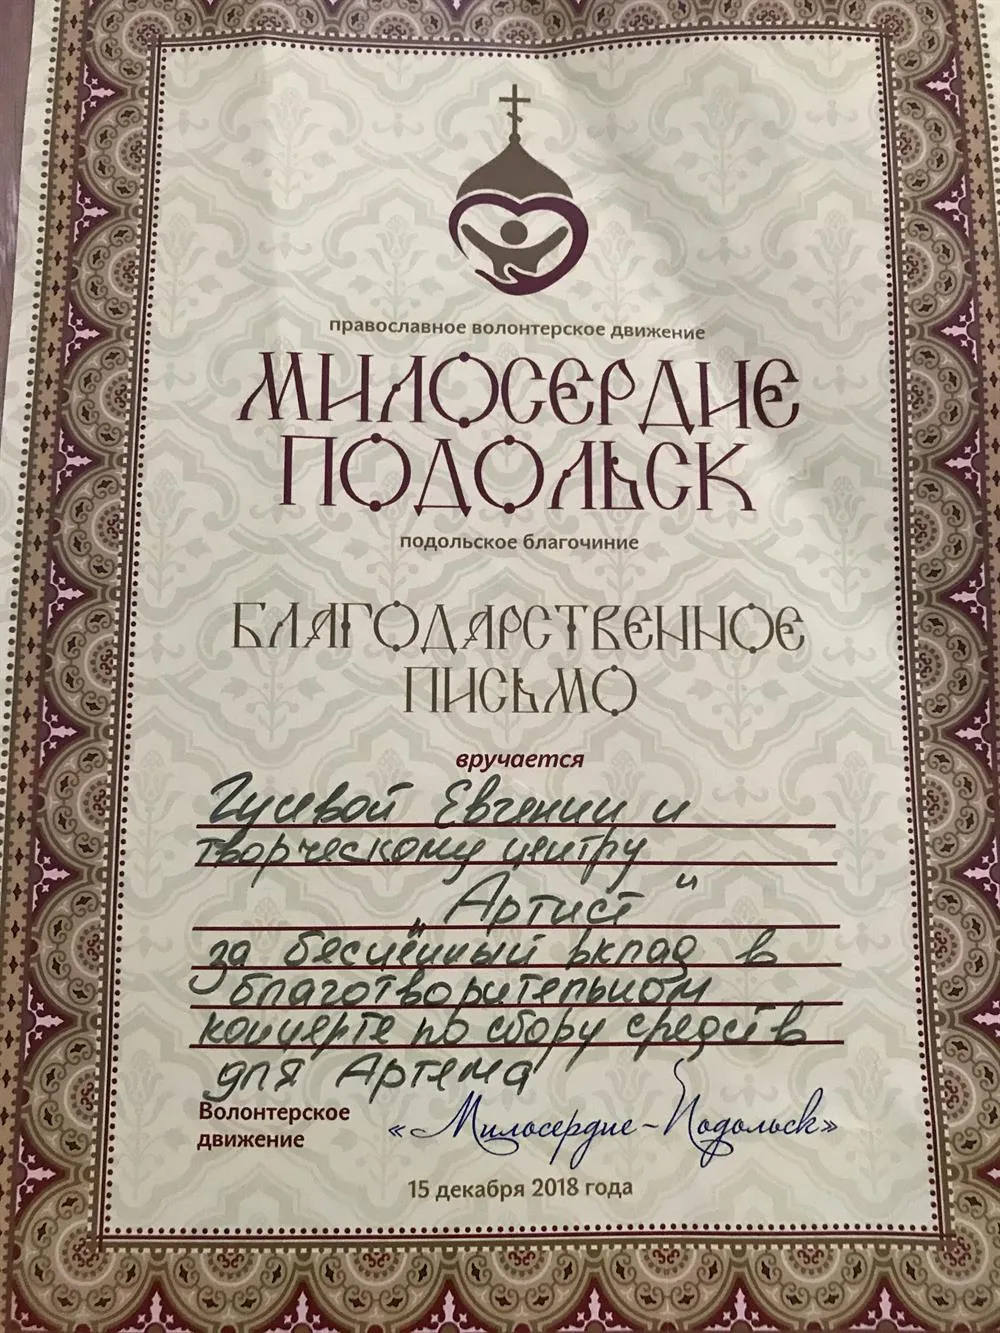 православное волонтерское движение
МИЛОСЕРДИЕ
ПОДОЛЬСК
подольское благочиние
БЛАГОДАРСТВЕННОЕ
ПИСЬМО
вручается
Евгении и
творческому центру
„Артист“
за бесценный вклад в
благотворительном
концерте по сбору средств
для Артема
Волонтерское
движение
«Милосердие-Подольск»
15 декабря 2018 года